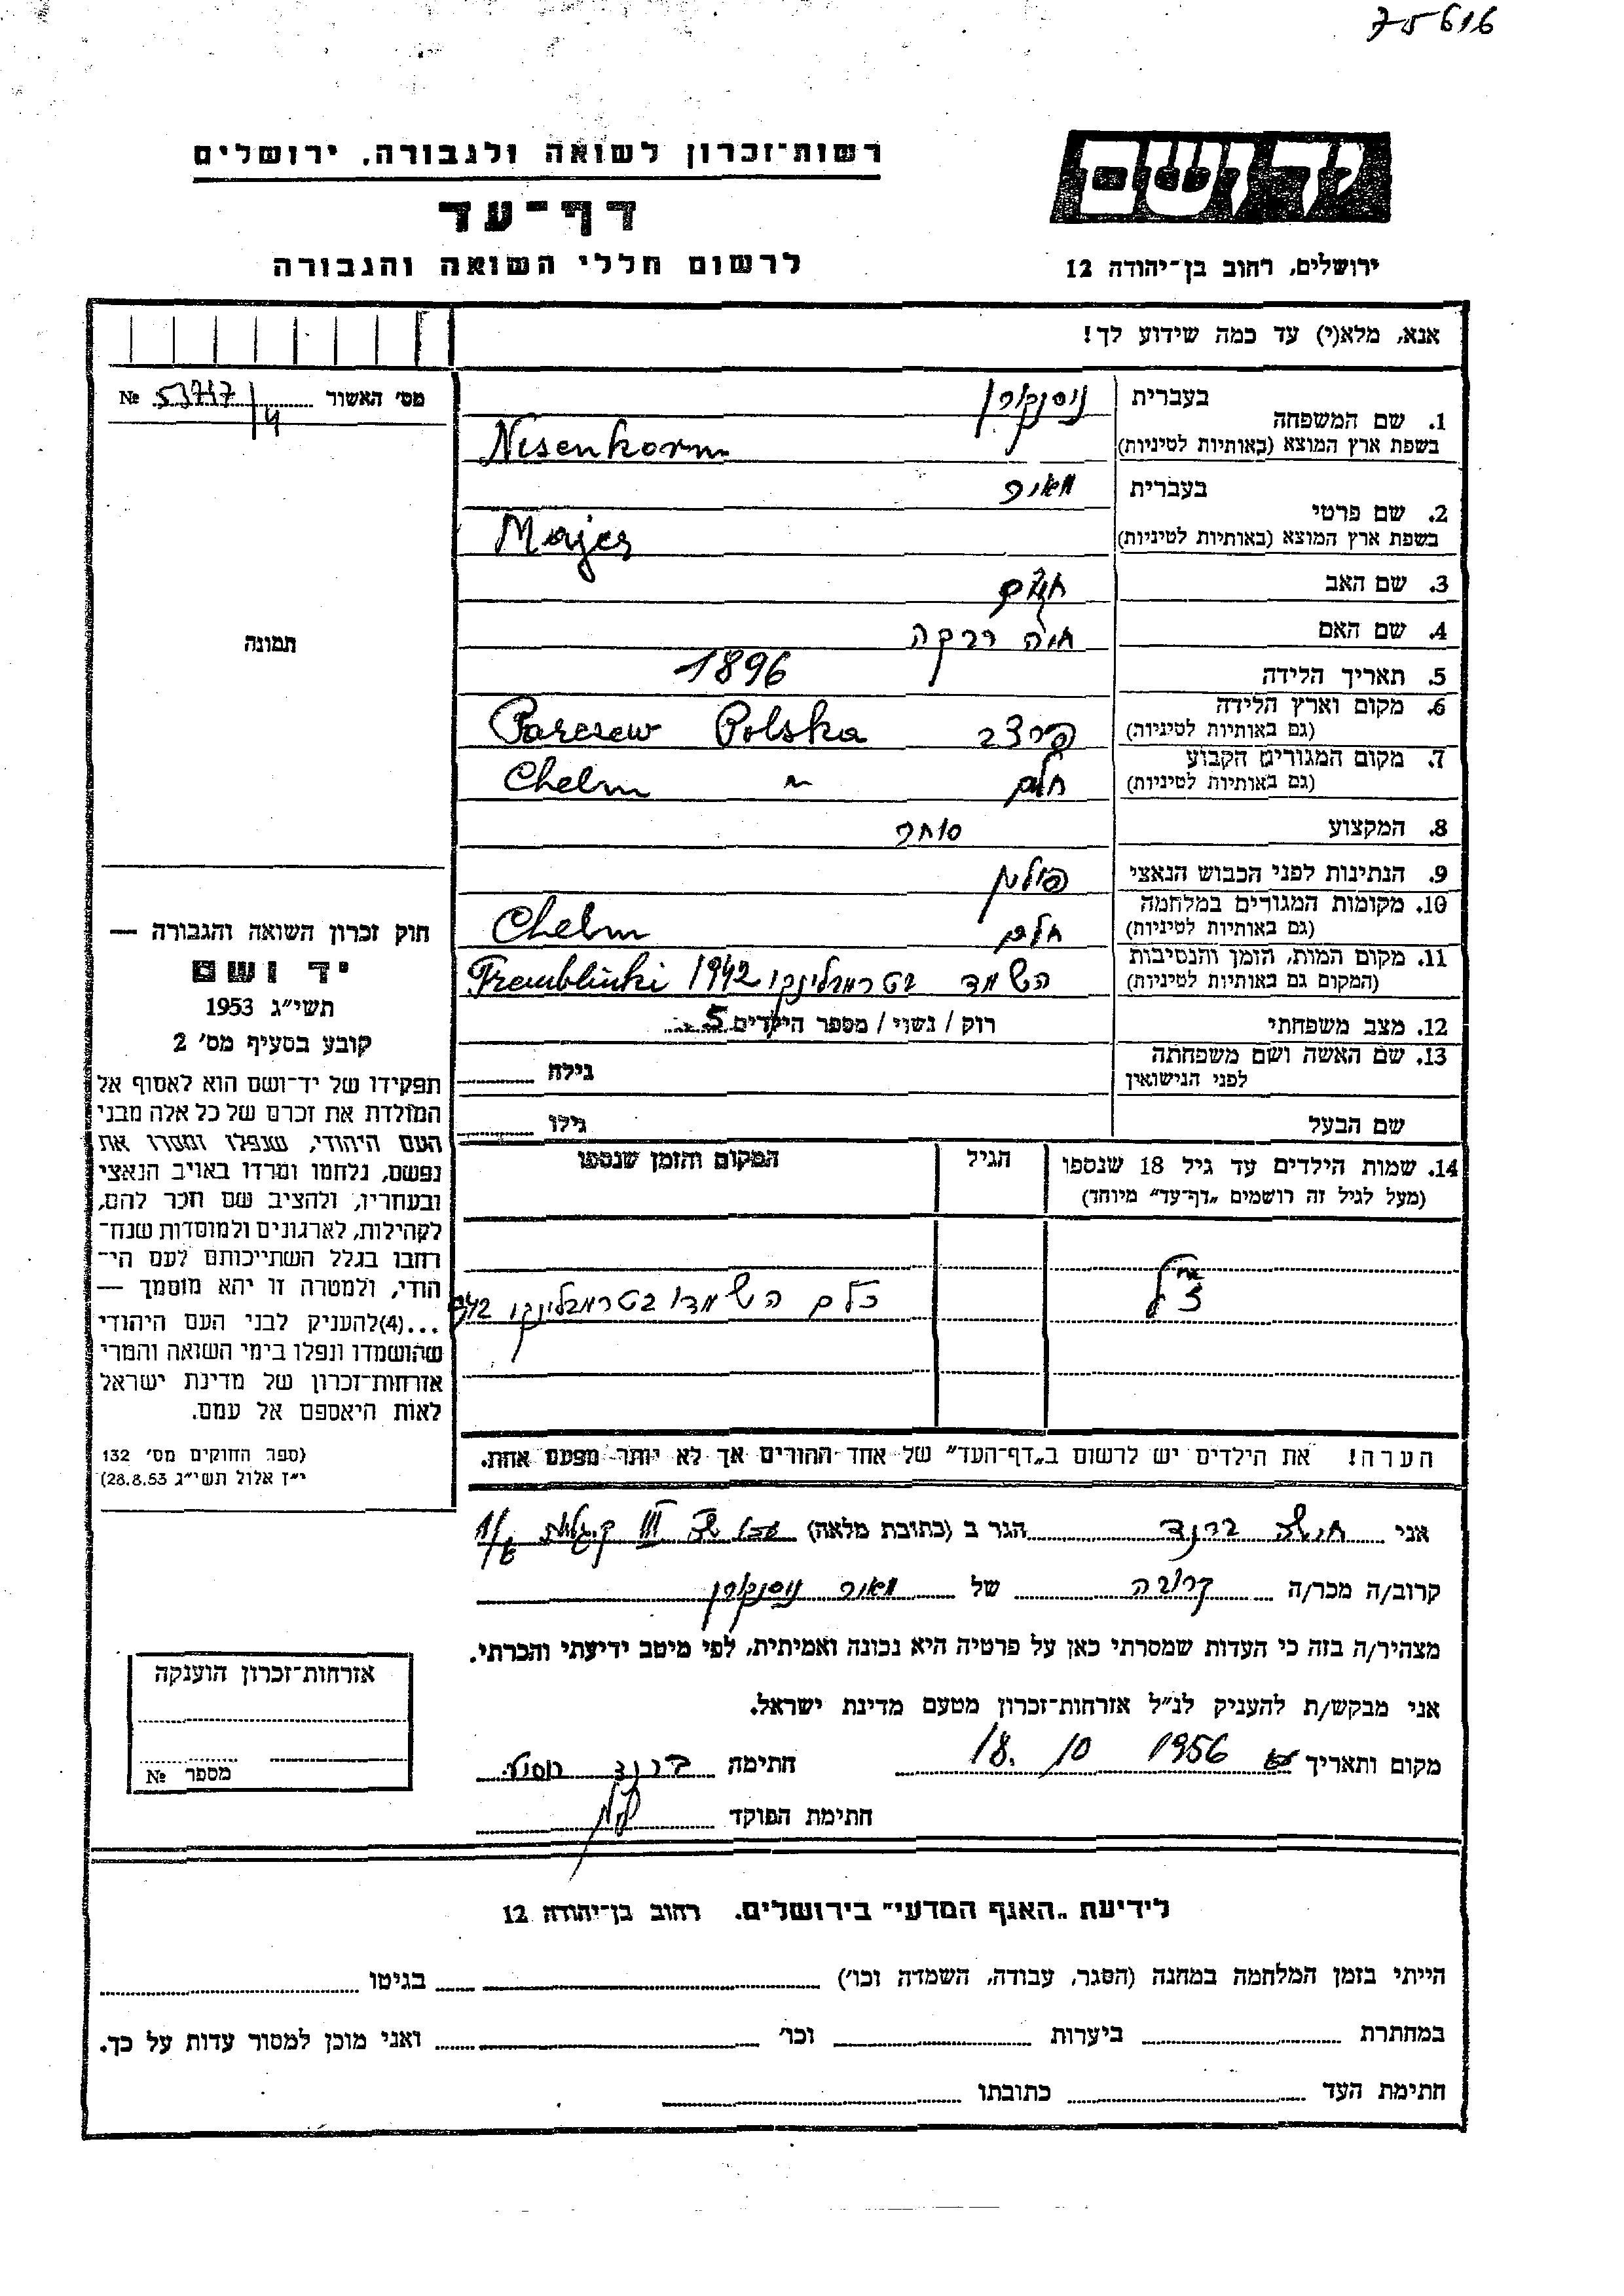 75616
יד ושם
רשות־זכרון לשואה ולגבורה, ירושלים
דף־עד
לרשום חללי השואה והגבורה
ירושלים, רחוב בן־יהודה 12
אנא, מלא(י) עד כמה שידוע לך!
מס׳ האשור № 53717/4
1. שם המשפחה
בעברית ניסנקורן
בשפת ארץ המוצא (באותיות לטיניות) Nisenkorn
2. שם פרטי
בעברית מאיר
בשפת ארץ המוצא (באותיות לטיניות) Majer
3. שם האב חיים
4. שם האם חיה רבקה
5. תאריך הלידה 1896
6. מקום וארץ הלידה
(גם באותיות לטיניות) פרצב Parczew Polska
7. מקום המגורים הקבוע
(גם באותיות לטיניות) חלם Chelm "
8. המקצוע סוחר
9. הנתינות לפני הכבוש הנאצי פולין
10. מקומות המגורים במלחמה
(גם באותיות לטיניות) חלם Chelm
11. מקום המות, הזמן והנסיבות
(המקום גם באותיות לטיניות) השמד בטרמבלינקי 1942 Tremblinki
12. מצב משפחתי רוק / נשוי / מספר הילדים 5
13. שם האשה ושם משפחתה
לפני הנישואין
גילה
שם הבעל
גילו
14. שמות הילדים עד גיל 18 שנספו
(מעל לגיל זה רושמים „דף־עד״ מיוחד)
הגיל
המקום והזמן שנספו
כלם השמדו בטרמבלינקי 942
הערה! את הילדים יש לרשום ב„דף־העד״ של אחד ההורים אך לא יותר מפעם אחת.
תמונה
חוק זכרון השואה והגבורה —
יד ושם
תשי״ג 1953
קובע בסעיף מס׳ 2
תפקידו של יד־ושם הוא לאסוף אל
המולדת את זכרם של כל אלה מבני
העם היהודי, שנפלו ומסרו את
נפשם, נלחמו ומרדו באויב הנאצי
ובעוזריו, ולהציב שם וזכר להם,
לקהילות, לארגונים ולמוסדות שנח־
רבו בגלל השתייכותם לעם הי־
הודי, ולמטרה זו יהא מוסמך —
...(4)להעניק לבני העם היהודי
שהושמדו ונפלו בימי השואה והמרי
אזרחות־זכרון של מדינת ישראל
לאות היאספם אל עמם.
(ספר החוקים מס׳ 132
י״ז אלול תשי״ג 28.8.53)
אני ברנד הגר ב (כתובת מלאה) III
קרוב/ה מכר/ה קרובה של מאיר ניסנקורן
מצהיר/ה בזה כי העדות שמסרתי כאן על פרטיה היא נכונה ואמיתית, לפי מיטב ידיעתי והכרתי.
אני מבקש/ת להעניק לנ״ל אזרחות־זכרון מטעם מדינת ישראל.
מקום ותאריך 18. 10 1956 חתימה ברנד
חתימת הפוקד
אזרחות־זכרון הוענקה
מספר №
לידיעת „האגף המדעי״ בירושלים. רחוב בן־יהודה 12
הייתי בזמן המלחמה במחנה (הסגר, עבודה, השמדה וכו׳) בגיטו
במחתרת ביערות וכו׳ ואני מוכן למסור עדות על כך.
חתימת העד כתובתו